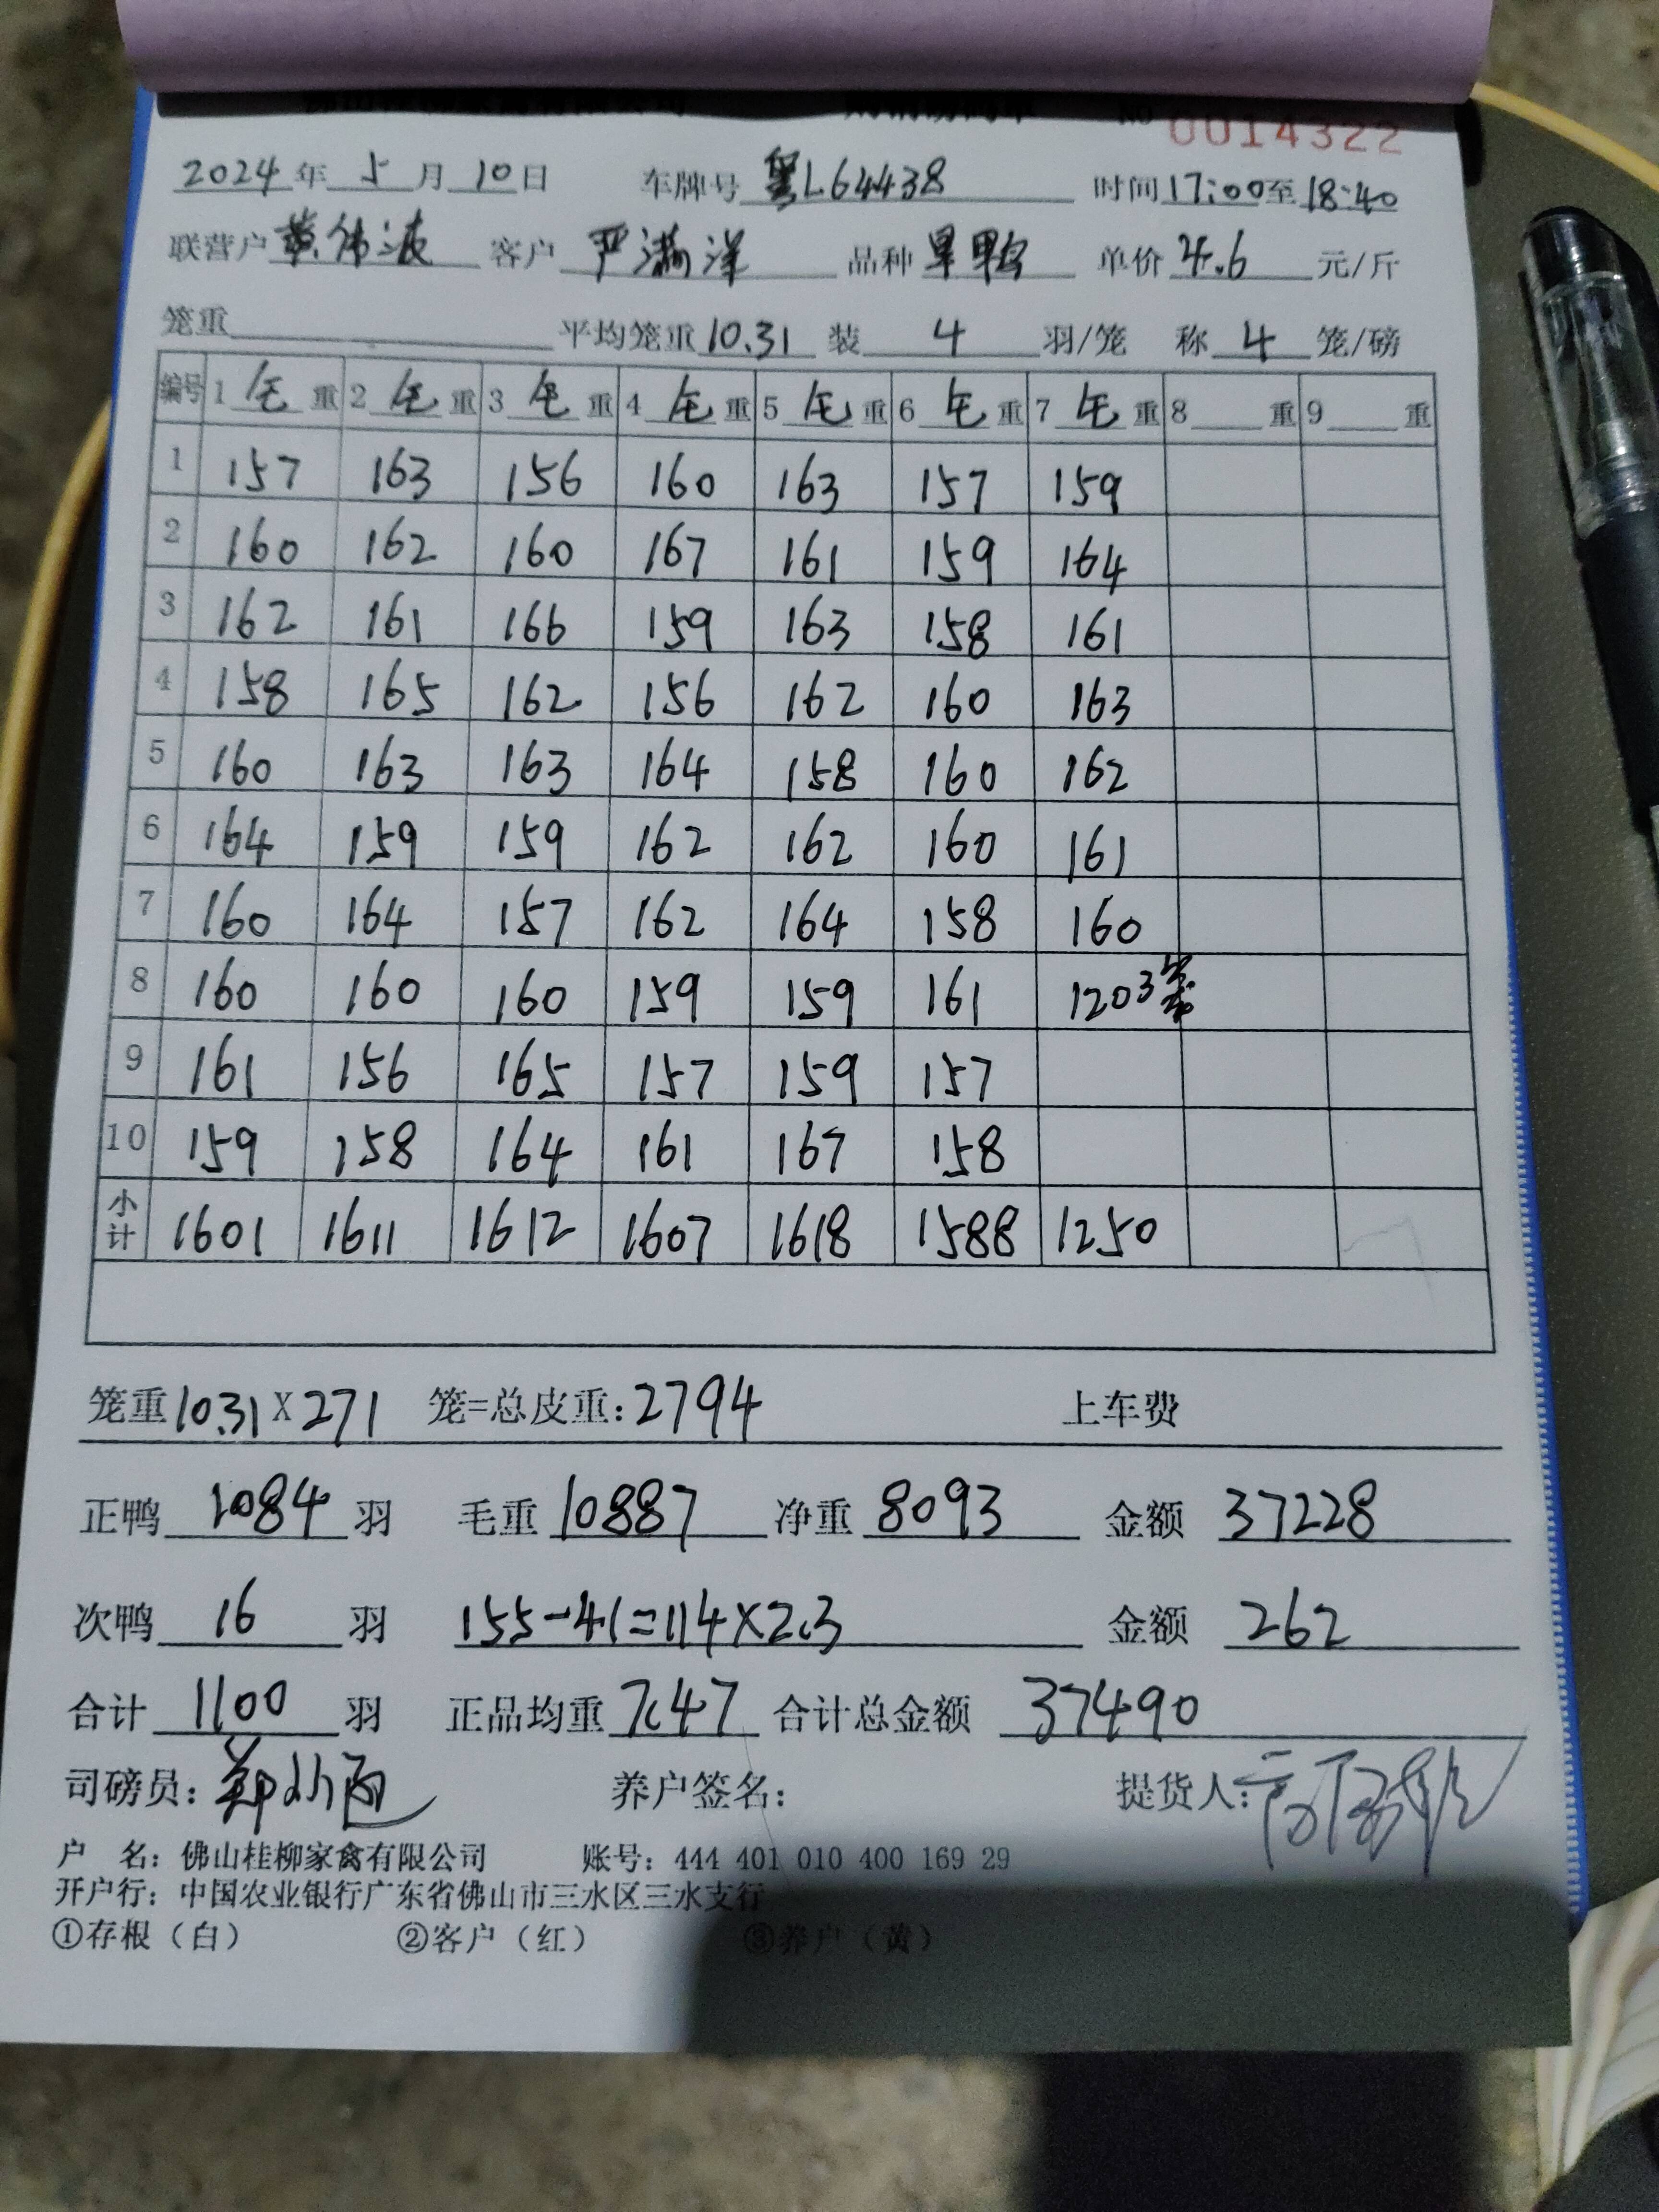 0014322
2024年 5月 10日 车牌号 粤L64438 时间17:00至18:40
联营户 黄伟波 客户 严满洋 品种 旱鸭 单价 4.6 元/斤
笼重 平均笼重 10.31 装 4 羽/笼 称 4 笼/磅
编号 1 毛 重 2 毛 重 3 毛 重 4 毛 重 5 毛 重 6 毛 重 7 毛 重 8 重 9 重
1 157 163 156 160 163 157 159
2 160 162 160 167 161 159 164
3 162 161 166 159 163 158 161
4 158 165 162 156 162 160 163
5 160 163 163 164 158 160 162
6 164 159 159 162 162 160 161
7 160 164 157 162 164 158 160
8 160 160 160 159 159 161 120 3笼
9 161 156 165 157 159 157
10 159 158 164 161 167 158
小计 1601 1611 1612 1607 1618 1588 1250
笼重 10.31 X 271 笼=总皮重: 2794 上车费
正鸭 1084 羽 毛重 10887 净重 8093 金额 37228
次鸭 16 羽 155-41=114×2.3 金额 262
合计 1100 羽 正品均重 7.47 合计总金额 37490
司磅员: 养户签名: 提货人:
户 名: 佛山桂柳家禽有限公司 账号: 444 401 010 400 169 29
开户行: 中国农业银行广东省佛山市三水区三水支行
①存根（白） ②客户（红） ③养户（黄）